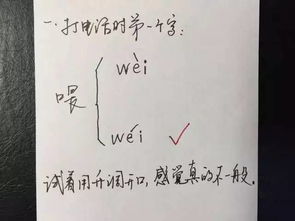 一、打电话时第一个字:
wèi
喂
wéi
试着用升调开口,感觉真的不一般。